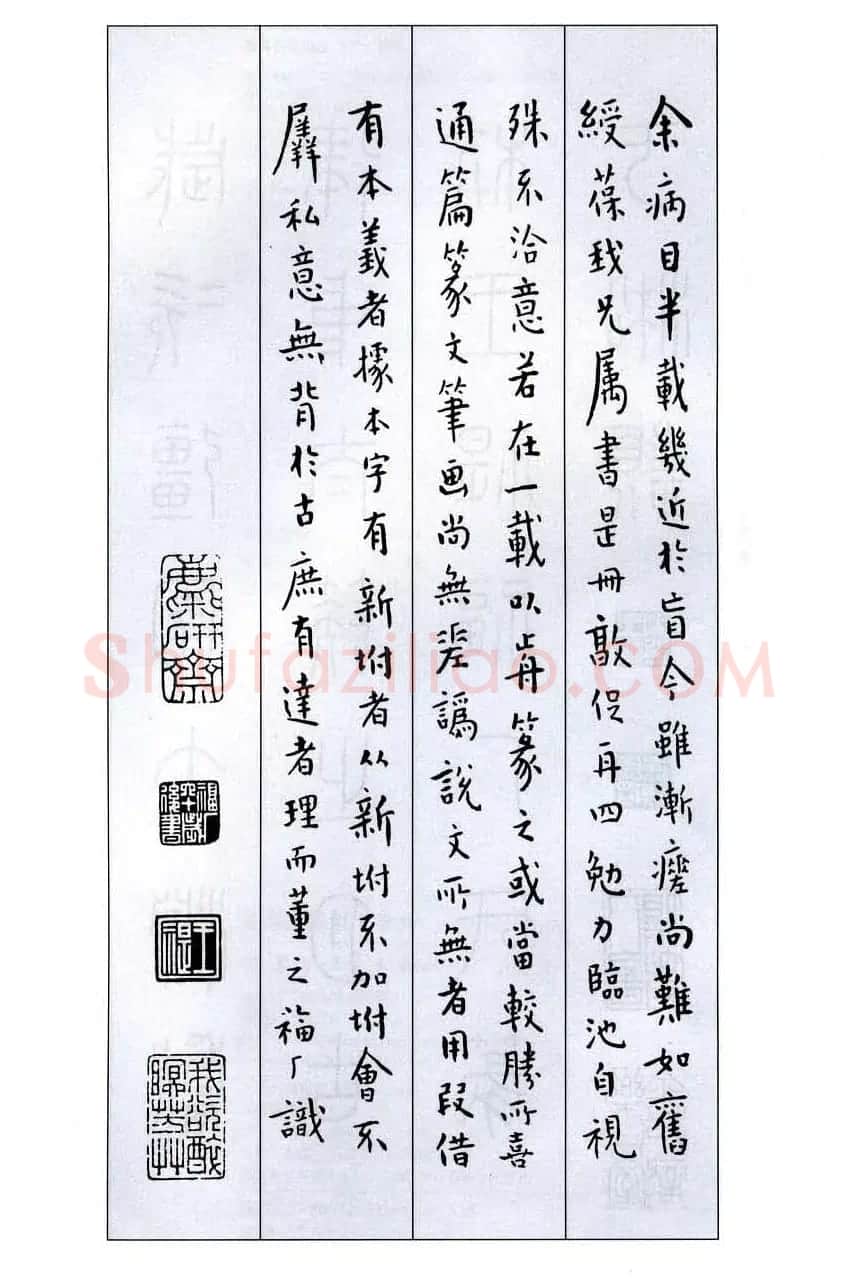 余病目半載幾近於盲今雖漸瘥尚難如舊
綬葆我兄属書是冊敦促再四勉力臨池自視
殊不洽意若在一載以歬篆之或當較勝所喜
通篇篆文筆画尚無差譌說文所無者用叚借
有本義者據本字有新坿者从新坿不加坿會不
羼私意無背於古庶有達者理而董之福厂識
麋研齋
福厂十歲後書
王禔
我欲醉眠芳草
Shufaziliao.COM